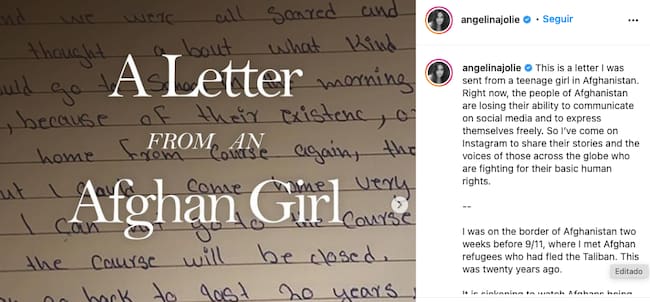 and we were all scared and
thought about what kind
ould go to morning
, because of their existenc, o
home from course again, the
ut I could come home very
I can go to the course
the course will be closed.
go back to last 20 years,
A Letter
FROM AN
Afghan Girl
angelinajolie • Seguir
angelinajolie This is a letter I was
sent from a teenage girl in Afghanistan.
Right now, the people of Afghanistan
are losing their ability to communicate
on social media and to express
themselves freely. So I've come on
Instagram to share their stories and the
voices of those across the globe who
are fighting for their basic human
rights.
--
I was on the border of Afghanistan two
weeks before 9/11, where I met Afghan
refugees who had fled the Taliban. This
was twenty years ago.
Editado
It is sickening to watch Afghans being